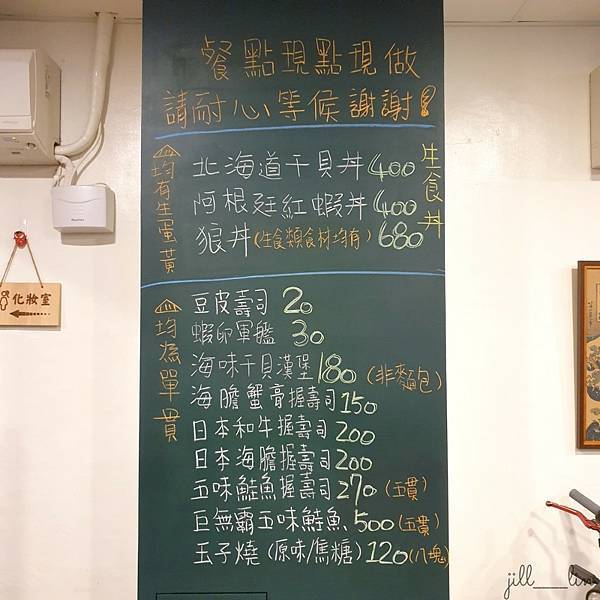 餐點現點現做
請耐心等候謝謝!
生食丼
均有生蛋黃
北海道干貝丼400
阿根廷紅蝦丼400
狼丼(生食類食材均有)680
均為單貫
豆皮壽司 20
蝦卵軍艦 30
海味干貝漢堡180(非麵包)
海膽蟹膏握壽司150
日本和牛握壽司200
日本海膽握壽司200
五味鮭魚握壽司270(五貫)
巨無霸五味鮭魚500(五貫)
玉子燒(原味/焦糖)120(八塊)
化妝室
jill___lin